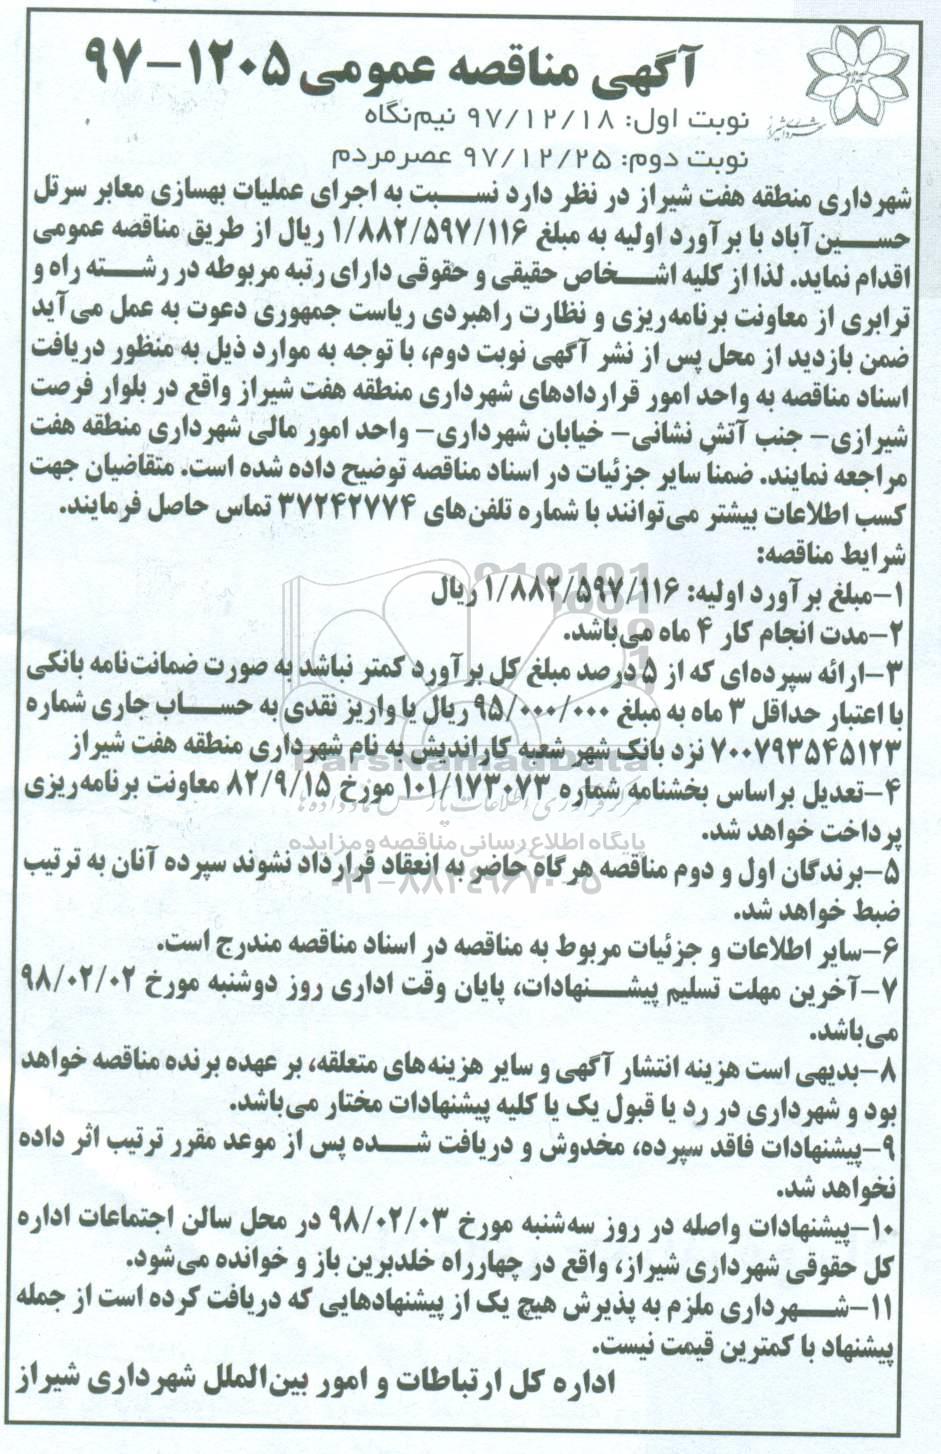 آگهی مناقصه عمومی ۱۲۰۵-۹۷
نوبت اول: ۹۷/۱۲/۱۸ نیم‌نگاه
نوبت دوم: ۹۷/۱۲/۲۵ عصرمردم
شهرداری منطقه هفت شیراز در نظر دارد نسبت به اجرای عملیات بهسازی معابر سرتل
حسین‌آباد با برآورد اولیه به مبلغ ۱/۸۸۲/۵۹۷/۱۱۶ ریال از طریق مناقصه عمومی
اقدام نماید. لذا از کلیه اشخاص حقیقی و حقوقی دارای رتبه مربوطه در رشته راه و
ترابری از معاونت برنامه‌ریزی و نظارت راهبردی ریاست جمهوری دعوت به عمل می‌آید
ضمن بازدید از محل پس از نشر آگهی نوبت دوم، با توجه به موارد ذیل به منظور دریافت
اسناد مناقصه به واحد امور قراردادهای شهرداری منطقه هفت شیراز واقع در بلوار فرصت
شیرازی- جنب آتش نشانی- خیابان شهرداری- واحد امور مالی شهرداری منطقه هفت
مراجعه نمایند. ضمنا سایر جزئیات در اسناد مناقصه توضیح داده شده است. متقاضیان جهت
کسب اطلاعات بیشتر می‌توانند با شماره تلفن‌های ۳۷۲۴۲۷۷۴ تماس حاصل فرمایند.
شرایط مناقصه:
۱-مبلغ برآورد اولیه: ۱/۸۸۲/۵۹۷/۱۱۶ ریال
۲-مدت انجام کار ۴ ماه می‌باشد.
۳-ارائه سپرده‌ای که از ۵ درصد مبلغ کل برآورد کمتر نباشد به صورت ضمانت‌نامه بانکی
با اعتبار حداقل ۳ ماه به مبلغ ۹۵/۰۰۰/۰۰۰ ریال یا واریز نقدی به حساب جاری شماره
۷۰۰۷۹۳۵۴۵۱۲۳ نزد بانک شهر شعبه کاراندیش به نام شهرداری منطقه هفت شیراز
ParsNamadData
۴-تعدیل براساس بخشنامه شماره ۱۰۱/۱۷۳۰۷۳ مورخ ۸۲/۹/۱۵ معاونت برنامه‌ریزی
پرداخت خواهد شد.
پایگاه اطلاع رسانی مناقصه و مزایده
۵-برندگان اول و دوم مناقصه هرگاه حاضر به انعقاد قرارداد نشوند سپرده آنان به ترتیب
ضبط خواهد شد.
۶-سایر اطلاعات و جزئیات مربوط به مناقصه در اسناد مناقصه مندرج است.
۷-آخرین مهلت تسلیم پیشنهادات، پایان وقت اداری روز دوشنبه مورخ ۹۸/۰۲/۰۲
می‌باشد.
۸-بدیهی است هزینه انتشار آگهی و سایر هزینه‌های متعلقه، بر عهده برنده مناقصه خواهد
بود و شهرداری در رد یا قبول یک یا کلیه پیشنهادات مختار می‌باشد.
۹-پیشنهادات فاقد سپرده، مخدوش و دریافت شده پس از موعد مقرر ترتیب اثر داده
نخواهد شد.
۱۰-پیشنهادات واصله در روز سه‌شنبه مورخ ۹۸/۰۲/۰۳ در محل سالن اجتماعات اداره
کل حقوقی شهرداری شیراز، واقع در چهارراه خلدبرین باز و خوانده می‌شود.
۱۱-شهرداری ملزم به پذیرش هیچ یک از پیشنهادهایی که دریافت کرده است از جمله
پیشنهاد با کمترین قیمت نیست.
اداره کل ارتباطات و امور بین‌الملل شهرداری شیراز